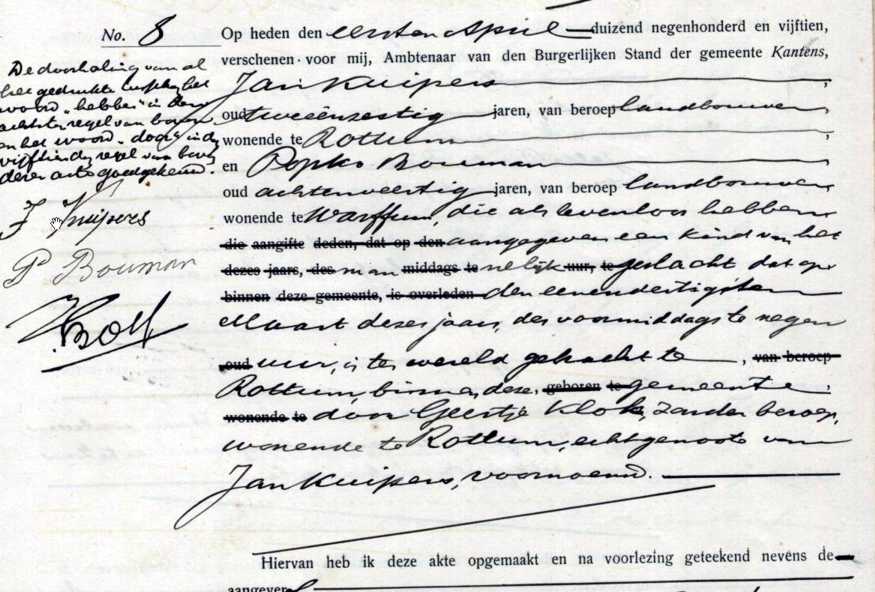 No. 8
De doorhaling van al
het gedrukte
woord "hebben" in den
achtste regel van boven
en het woord "door" in de
vijftiende regel van boven
dezer acte goedgekeurd.
J Kuipers
P Bouman
Op heden den eersten April duizend negenhonderd en vijftien,
verschenen voor mij, Ambtenaar van den Burgerlijken Stand der gemeente Kantens,
Jan Kuipers,
oud tweeënzestig jaren, van beroep landbouwer,
wonende te Rottum,
en Popko Bouman,
oud achtenveertig jaren, van beroep landbouwer,
wonende te Warffum, die als levenloos hebben
die aangifte deden, dat op den aangegeven een kind van het
dezes jaars, des man middags te nelijk uur, te geslacht dat op
binnen deze gemeente, is overleden den eenendertigsten
Maart dezes jaars, des voormiddags te negen
oud uur, is ter wereld gebracht te, van beroep
Rottum, binnen deze, geboren te gemeente,
wonende te door Geertje Klok, zonder beroep,
wonende te Rottum, echtgenoote van
Jan Kuipers, voornoemd.
Hiervan heb ik deze akte opgemaakt en na voorlezing geteekend nevens de
aangever